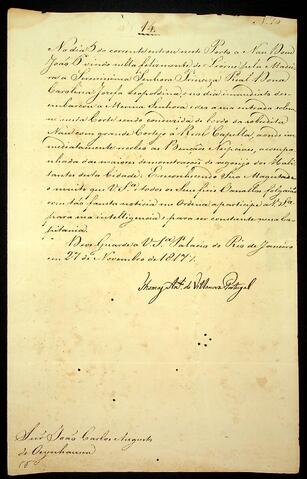 14
No dia 5 do corrente entrou neste Porto a Náo Dom
João 6º vindo nella felizmente de Liorne pela Madei
ra a Serenissima Senhora Princeza Real Dona
Carolina Jozefa Leopoldina, e no dia immediato dezem
barcou a Mesma Senhora, e deo a sua entrada solem
ne nesta Corte sendo conduzida de bordo da sobredita
Náo com grande Cortejo á Real Capella, aonde im
mediatamente recebeo as Bençãos Nupciaes, acompa
nhada das maiores demonstraçoens de regozijo dos Habi
tantes desta Cidade. E reconhecendo Sua Magestade
o muito que V. Sª. e todos os Seus fieis Vassallos folgarão
com tão fausta noticia me Ordena a participe a V. Sª.
para sua intelligencia e para ser constante nessa Ca
pitania.
Deos Guarde a V. Sª. Palacio do Rio de Janeiro
em 27 de Novembro de 1817.
Thomaz Antº. de Villanova Portugal
Snr. João Carlos Augusto
de Oeynhausen